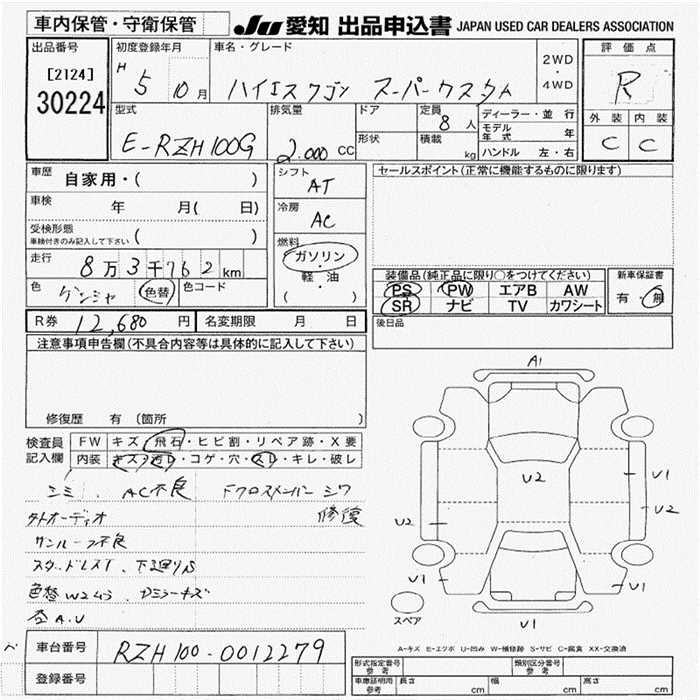 車内保管・守衛保管 JU 愛知 出品申込書 JAPAN USED CAR DEALERS ASSOCIATION
出品番号
[2124]
30224
初度登録年月
H 5 10月
車名・グレード
ハイエスワゴン スーパーカスタム
2WD
・
4WD
評価点
R
外装 内装
C C
型式
E-RZH100G
排気量
2.000 CC
ドア
形状
定員
8 人
積載
kg
ディーラー・並行
モデル年式 年
ハンドル 左・右
車歴 自家用・( )
車検 年 月( 日)
受検形態
車検付きのみ記入して下さい ( )
走行 8万3千762km
色 ゲンシャ 色替 色コード
シフト
AT
冷房
AC
燃料
ガソリン・
軽・油
( )
セールスポイント(正常に機能するものに限ります)
装備品(純正品に限り○をつけてください)
PS PW エアB AW
SR ナビ TV カワシート
新車保証書
有・無
R券 12,680 円 名変期限 月 日
後日品
注意事項申告欄(不具合内容等は具体的に記入して下さい)
修復歴 有 (箇所 )
検査員
記入欄
FW キズ・飛石・ヒビ割・リペア跡・X要
内装 キズ・汚レ・コゲ・穴・スレ・キレ・破レ
シミ、AC不良 Fクロスメンバー シワ
外オーディオ 修復
サンルーフ不良
スタッドレスT、下廻りS
色替
A.U
A1
U2
V1
U2
U2
V1
V1
V1
スペア
A-キズ E-エクボ U-凹み W-補修跡 S-サビ C-腐食 XX-交換済
車台番号 RZH100-0012279
登録番号
形式指定番号
参考
類別区分番号
参考
車庫証明用
参考
長さ cm 幅 cm 高さ cm